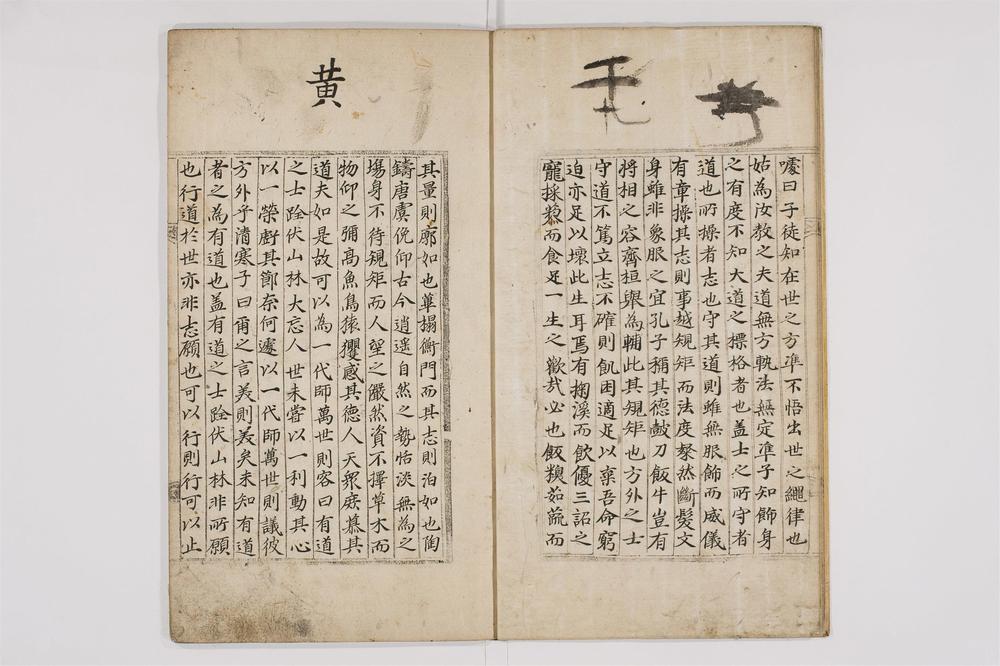 嚘曰子徒知在世之方準不悟出世之繩律也
姑為汝教之夫道無方軌法無定準子知飾身
之有度不知大道之標格者也盖士之所守者
道也所操者志也守其道則雖無服飾而威儀
有章操其志則事越規矩而法度粲然斷髮文
身雖非象服之宜孔子稱其德鼓刀飯牛豈有
將相之容齊桓擧為輔此其規矩也方外之士
守道不篤立志不確則飢困適足以棄吾命窮
迫亦足以壞此生耳焉有掬溪而飮優三詔之
寵採
而食足一生之歡哉必也飯糗茹蔬而
黃
其量則廓如也蓽搨衡門而其志則泊如也陶
鑄唐虞俛仰古今逍遥自然之勢恬淡無為之
塲身不待規矩而人望之儼然資不擇草木而
物仰之彌高魚鳥猿玃感其德人天衆庶慕其
道夫如是故可以為一代師萬世則客曰有道
之士跧伏山林大忘人世未甞以一利動其心
以一榮
其節奈何遽以一代師萬世則議彼
方外乎清寒子曰甭之言美則美矣未知有道
者之為有道也盖有道之士跧伏山林非所願
也行道於世亦非志願也可以行則行可以止